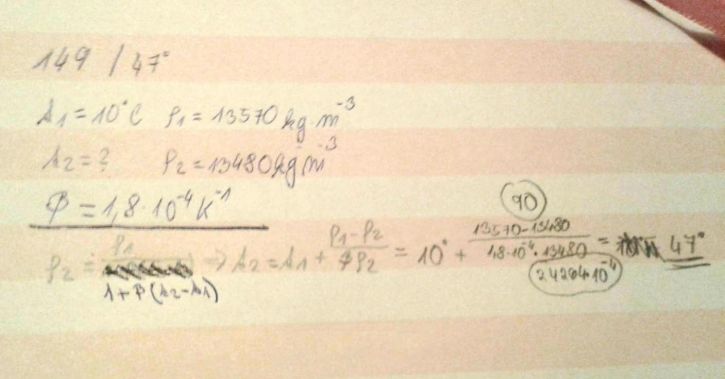 149 / 47°
t₁ = 10°C ρ₁ = 13570 kg m⁻³
t₂ = ? ρ₂ = 13480 kg m⁻³
β = 1,8·10⁻⁴ K⁻¹
90
ρ₂ = ρ₁ / 1+β(t₂-t₁) ⇒ t₂ = t₁ + ρ₁-ρ₂ / βρ₂ = 10° + 13570-13480 / 1,8·10⁻⁴·13480 = 47°
24264·10⁻⁴